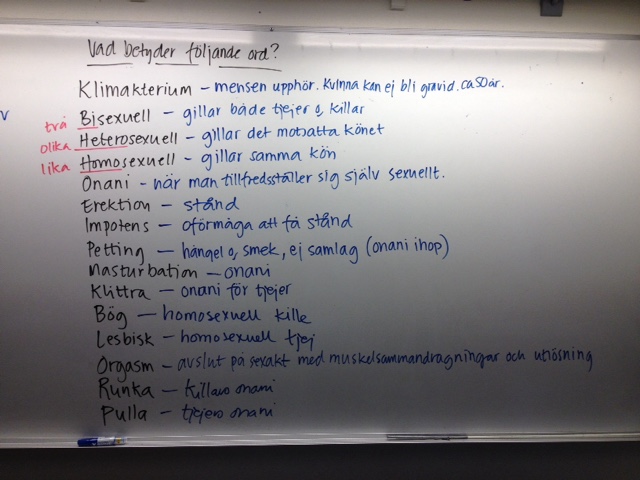 Vad betyder följande ord?
Klimakterium – mensen upphör. Kvinna kan ej bli gravid. ca 50 år.
två Bisexuell – gillar både tjejer o, killar
olika Heterosexuell – gillar det motsatta könet
lika Homosexuell – gillar samma kön
Onani – när man tillfredsställer sig själv sexuellt.
Erektion – stånd
Impotens – oförmåga att få stånd
Petting – hångel o, smek, ej samlag (onani ihop)
Masturbation – onani
Klittra – onani för tjejer
Bög – homosexuell kille
Lesbisk – homosexuell tjej
Orgasm – avslut på sexakt med muskelsammandragningar och utlösning
Runka – killars onani
Pulla – tjejers onani